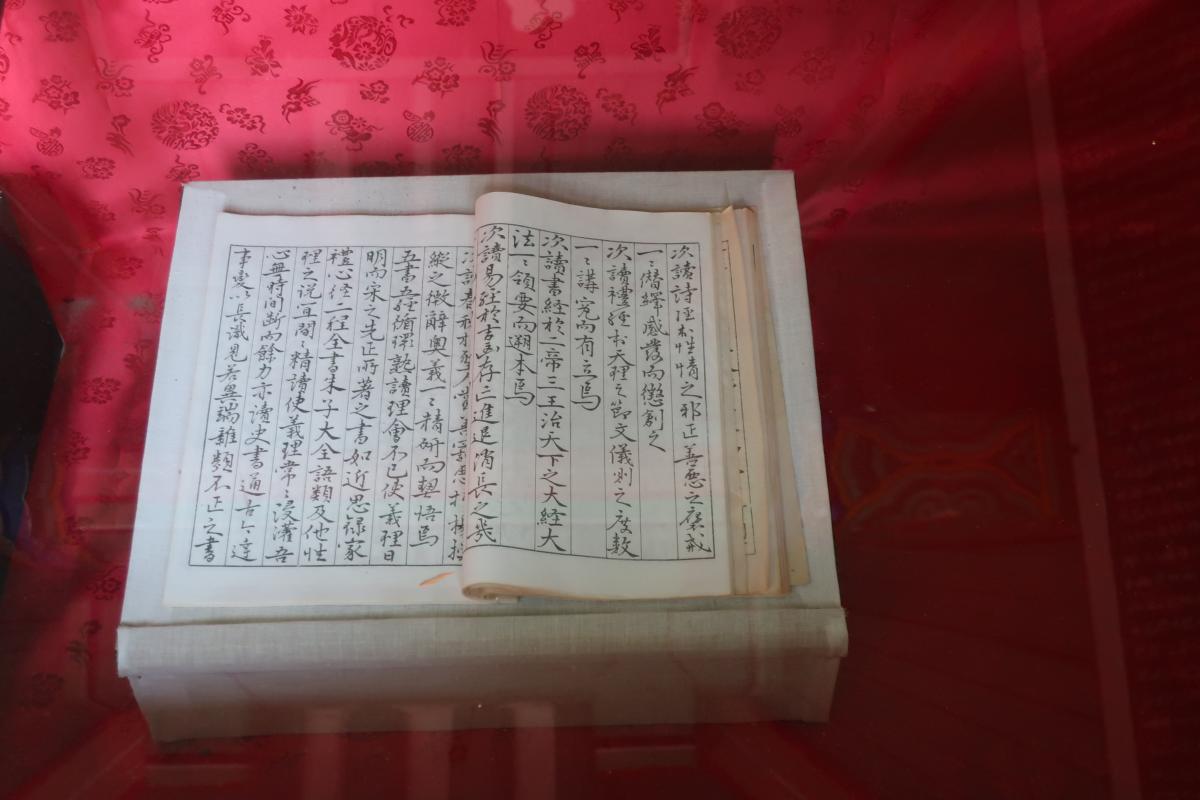 次讀詩経於性情之邪正善惡之褒戒
一〻潛繹感發而懲創之
次讀禮經於天理之節文儀則之度數
一〻講究而有立焉
次讀書経於二帝三王治天下之大経大
法一〻領要而遡本焉
次讀易経於吉凶存亡進退消長之幾
縱之微辭奧義一〻精研而契悟焉
五書五經循環熟讀理會不已使義理日
明而宋之先正所著之書如近思錄家
禮心經二程全書朱子大全語類及他性
理之說宜間〻精讀使義理常〻浸灌吾
心無時間斷而餘力亦讀史書通古今達
事變以長識見若異端雜類不正之書